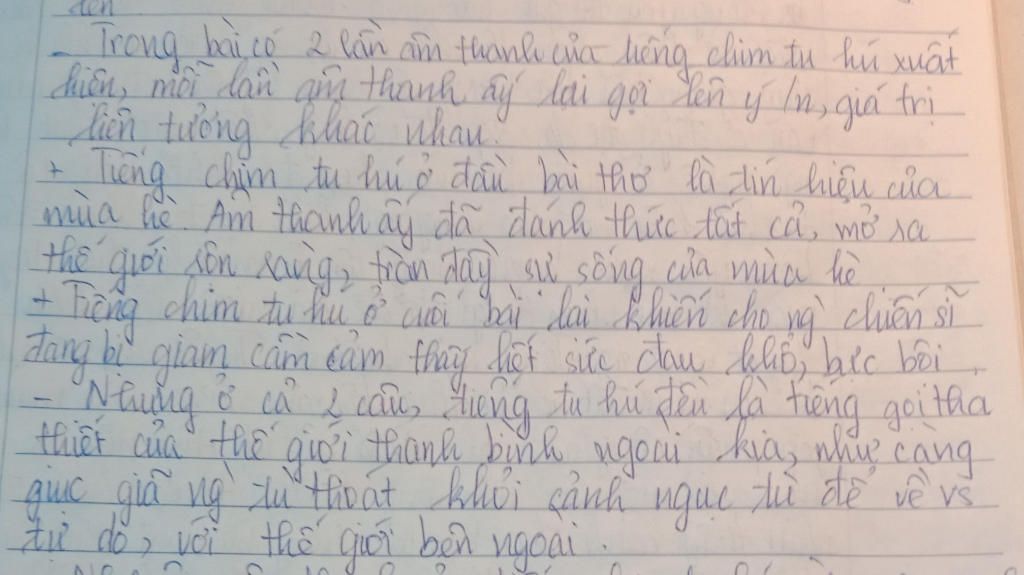 đến
- Trong bài có 2 lần âm thanh của tiếng chim tu hú xuất
hiện, mỗi lần âm thanh ấy lại gọi lên ý /n, giá trị
liên tưởng khác nhau.
+ Tiếng chim tu hú ở đầu bài thơ là tín hiệu của
mùa hè. Âm thanh ấy đã đánh thức tất cả, mở ra
thế giới rộn ràng, tràn đầy sự sống của mùa hè
+ Tiếng chim tu hú ở cuối bài lại khiến cho ng` chiến sĩ
đang bị giam cầm cảm thấy hết sức đau khổ, bực bội.
- Nhưng ở cả 2 câu, tiếng tu hú đều là tiếng gọi tha
thiết của thế giới thanh bình ngoài kia, như càng
giục giã ng` tù thoát khỏi cảnh ngục tù để về vs
tự do, với thế giới bên ngoài.